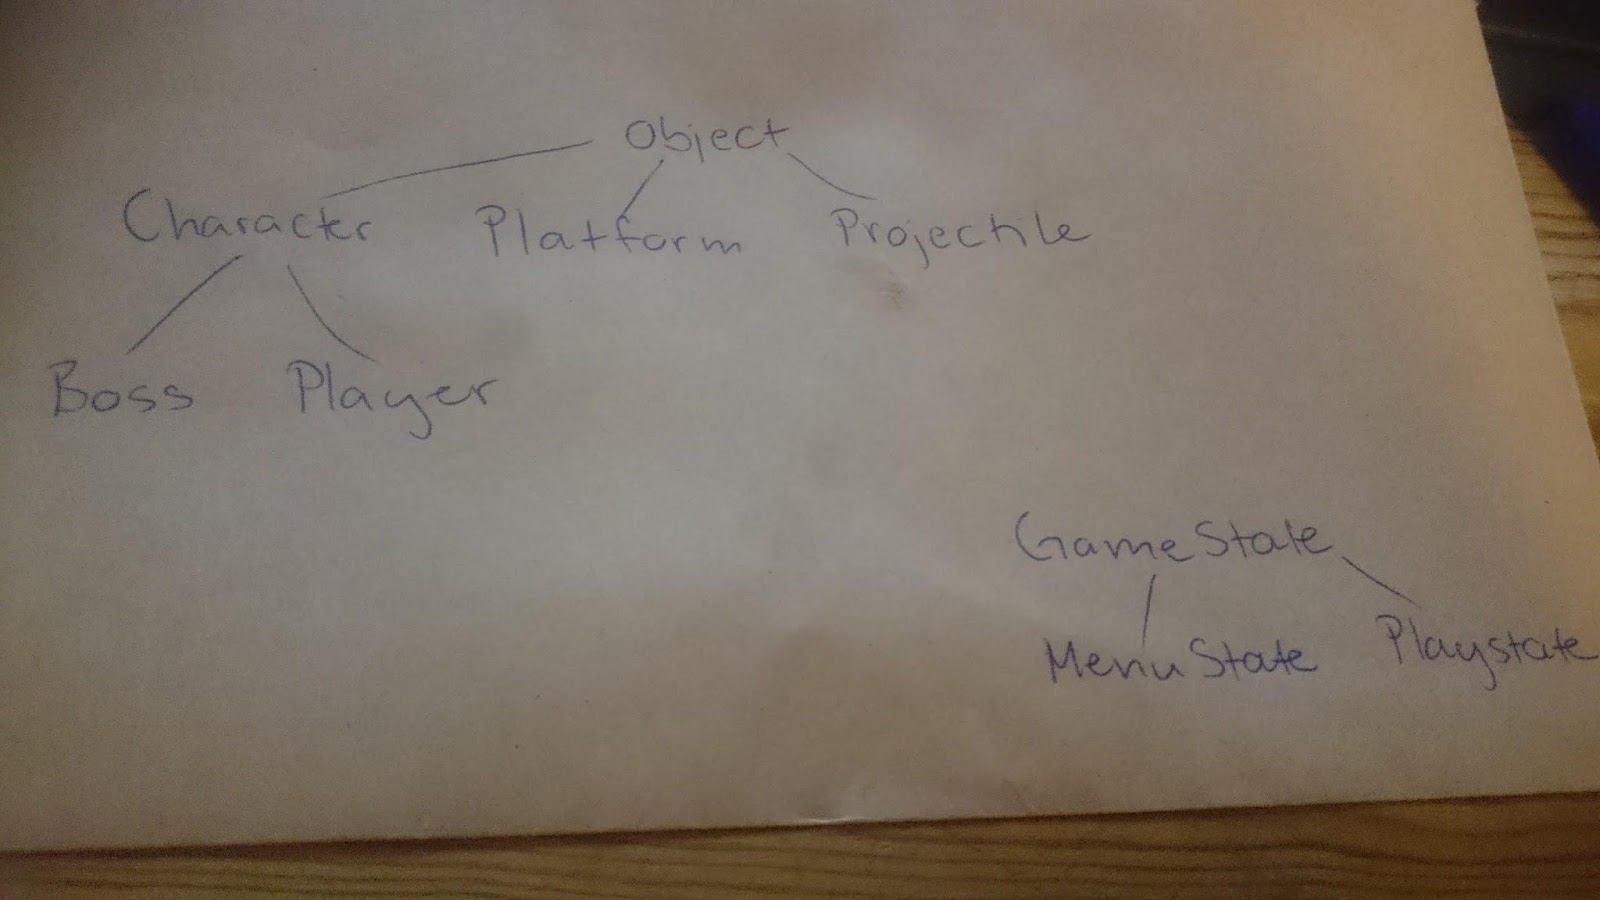 Object
Character Platform Projectile
Boss Player
GameState
MenuState Playstate